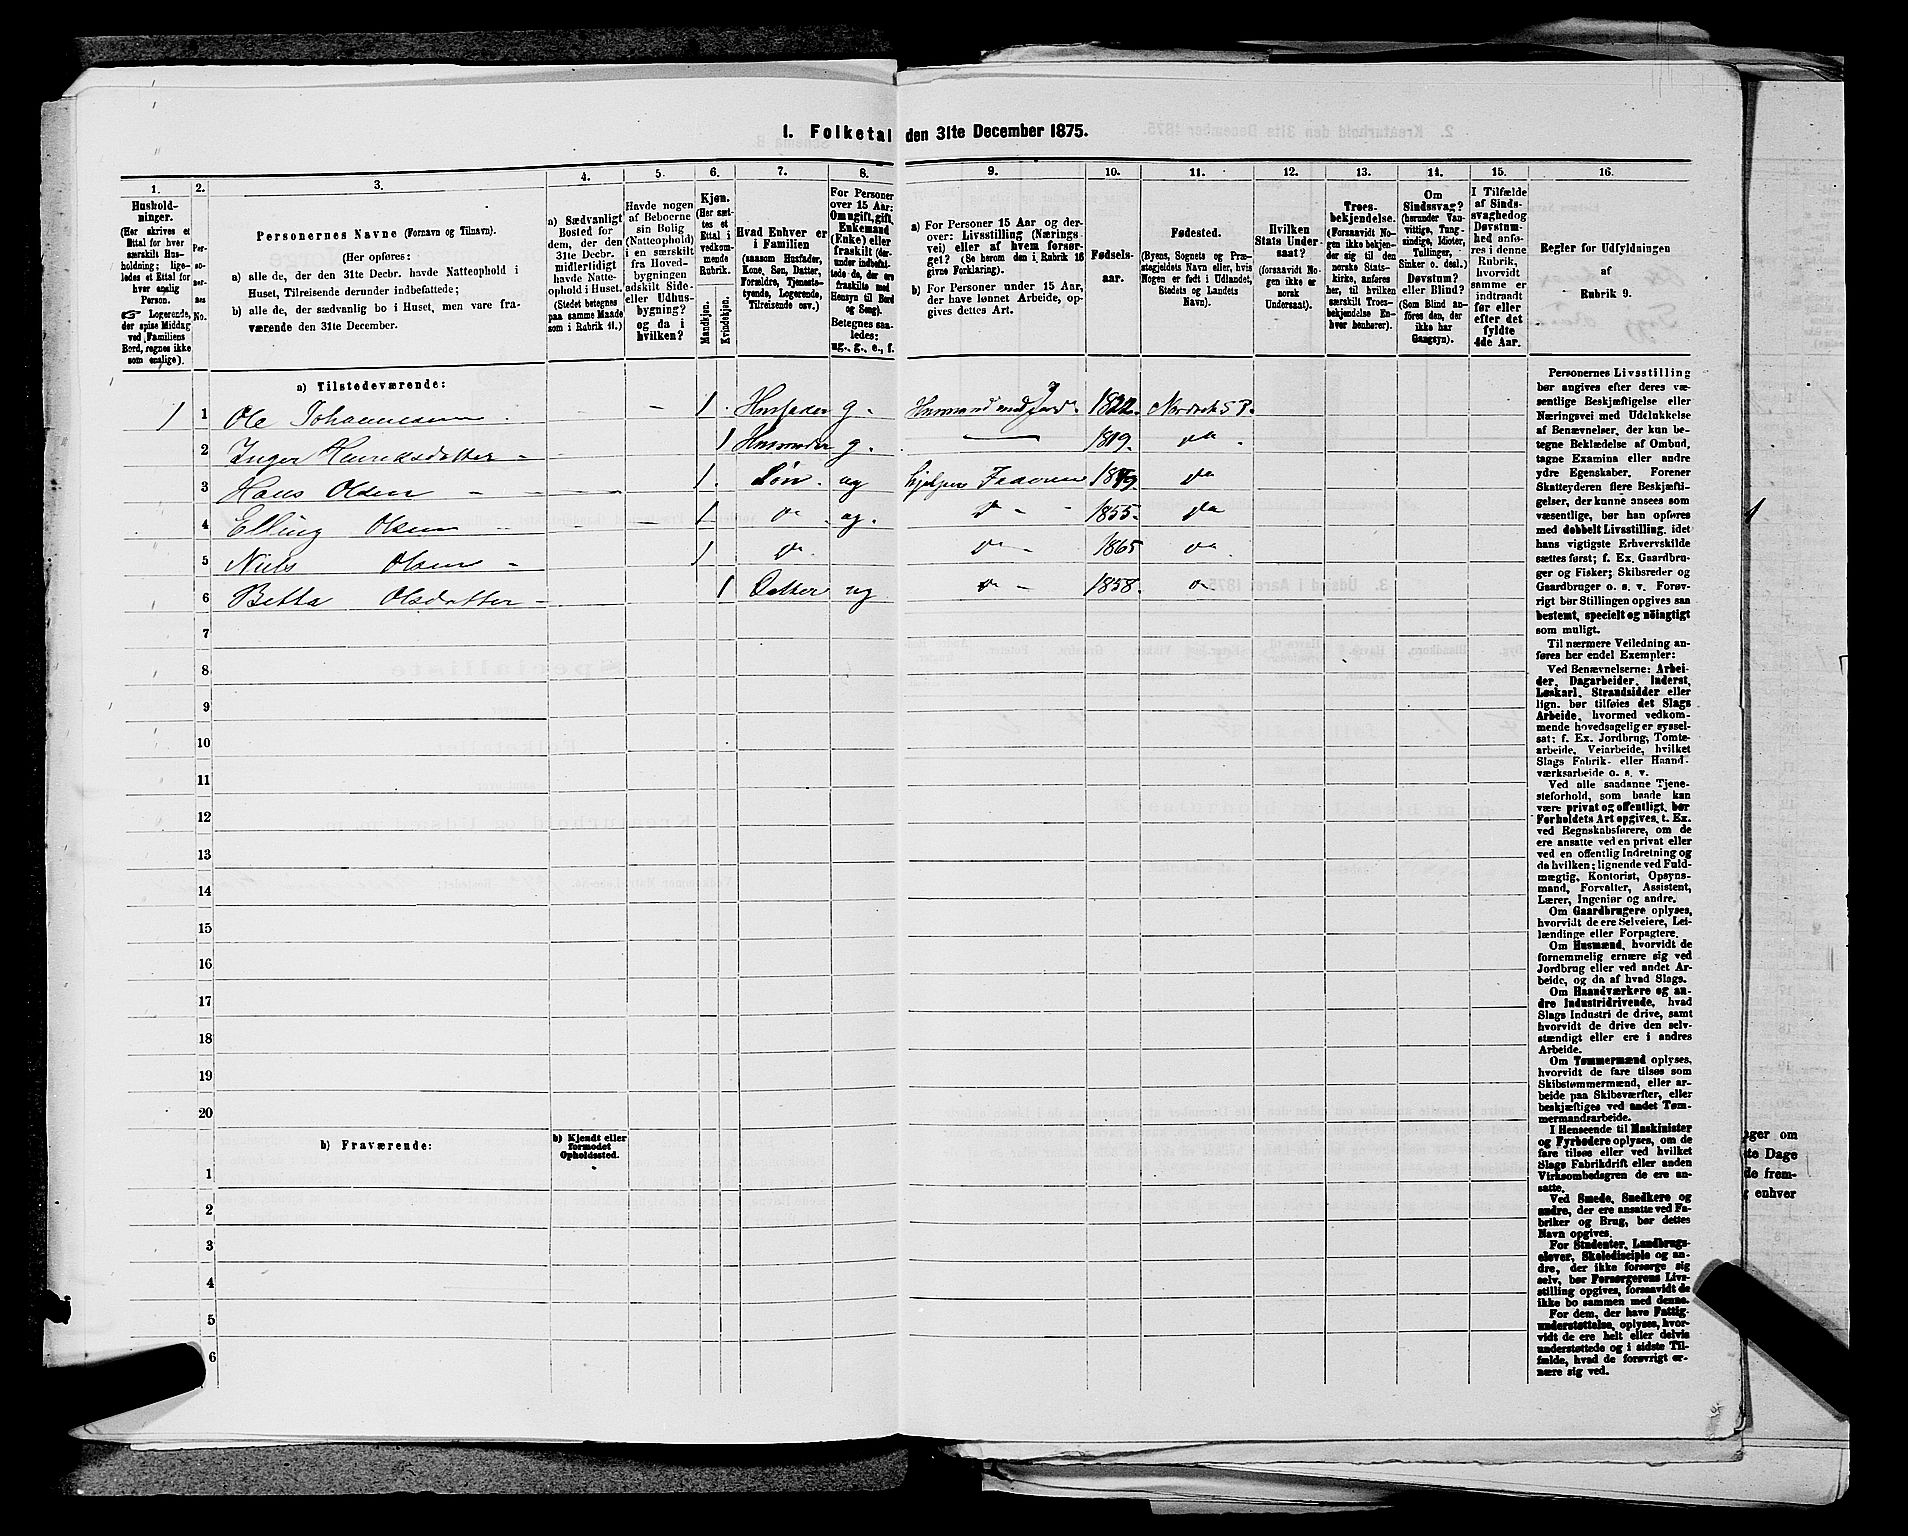 1. Folketal den 31te December 1875.
1.
2.
3.
4.
5.
6.
7.
8.
9.
10.
11.
12.
13.
14.
15.
16.
Hushold-
ninger.
(Her skrives et
Ettal for hver
særskilt Hus-
holdning; lige-
ledes et Ettal for
hver enslig
Person.
☞ Logerende,
der spise Middag
ved Familiens
Bord, regnes ikke
som enslige).
Per-
so-
ner-
nes
No.
Personernes Navne (Fornavn og Tilnavn).
(Her opføres:
a) alle de, der den 31te Decbr. havde Natteophold i
Huset, Tilreisende derunder indbefattede;
b) alle de, der sædvanlig bo i Huset, men vare fra-
værende den 31te December.
a) Sædvanligt
Bosted for
dem, der den
31te Decbr.
midlertidigt
havde Natte-
ophold i Huset.
(Stedet betegnes
paa samme Maade
som i Rubrik 11.)
Havde nogen
af Beboerne
sin Bolig
(Natteophold)
i en særskilt
fra Hoved-
bygningen
adskilt Side-
eller Udhus-
bygning?
og da i
hvilken?
Kjøn.
(Her sæt-
tes et
Ettal i
vedkom-
mende
Rubrik.
Mandkjøn.
Kvindekjøn.
Hvad Enhver er
i Familien
(saasom Husfader,
Kone, Søn, Datter,
Forældre, Tjeneste-
tyende, Logerende,
Tilreisende osv.)
For Personer
over 15 Aar:
Om ugift, gift,
Enkemand
(Enke) eller
fraskilt (der-
under indbefat-
tede de, der ere
fraskilte med
Hensyn til Bord
og Seng).
Betegnes saa-
ledes:
ug., g., e., f.
a) For Personer 15 Aar og der-
over: Livsstilling (Nærings-
vei) eller af hvem forsør-
get? (Se herom den i Rubrik 16
givne Forklaring).
b) For Personer under 15 Aar,
der have lønnet Arbeide, op-
gives dettes Art.
Fødsels-
aar.
Fødested.
(Byens, Sognets og Præ-
stegjeldets Navn eller, hvis
Nogen er født i Udlandet,
Stedets og Landets
Navn).
Hvilken
Stats Under-
saat?
(forsaavidt No-
gen ikke er
norsk
Undersaat.
Troes-
bekjendelse.
(Forsaavidt No-
gen ikke bekjen-
der sig til den
norske Stats-
kirke, anføres
her, til hvilken
særskilt Troes-
bekjendelse En-
hver henhører).
Om
Sindssvag?
(herunder Van-
vittige, Tung-
sindige, Idioter,
Tullinger,
Sinker o. desl.)
Døvstum?
eller Blind?
(Som Blind an-
føres den, der
ikke har
Gangsyn).
I Tilfælde
af Sinds-
svaghed og
Døvstum-
hed anfø-
res i denne
Rubrik,
hvorvidt
samme er
indtraadt
før eller
efter det
fyldte
4de Aar.
Regler for Udfyldningen
af
Rubrik 9.
a) Tilstedeværende:
1 1 Ole Johannesen - 1 Husfader g. Husmand med Jord 1822
2 Inger Henriksdatter 1 Husmoder g. 1819. da
3 Hans Olsen 1. Søn. ug hjelper Faderen da
4 Elling Olsen 1 do ug. do 1855. da
5 Niels Olsen 1 do do 1865 da
6 Betta Olsdatter 1 Datter ug do 1858. do
7
8
9
10
11
12
13
14
15
16
17
18
19
20
b) Fraværende:
b) Kjendt eller
formodet
Opholdssted.
1
2
3
4
5
6
Personernes Livsstilling
bør angives efter deres væ-
sentlige Beskjæftigelse eller
Næringsvei med Udelukkelse
af Benævnelser, der kun be-
tegne Beklædelse af Ombud,
tagne Examina eller andre
ydre Egenskaber. Forener
Skatteyderen flere Beskjæfti-
gelser, der kunne ansees som
væsentlige, bør han opføres
med dobbelt Livsstilling, idet
hans vigtigste Erhvervskilde
sættes først; f. Ex. Gaardbru-
ger og Fisker; Skibsreder og
Gaardbruger o. s. v. Forøv-
rigt bør Stillingen opgives saa
bestemt, specielt og nöiagtigt
som muligt.
Til nærmere Veiledning an-
føres her endel Exempler:
Ved Benævnelserne: Arbei-
der, Dagarbeider, Inderst,
Løskarl, Strandsidder eller
lign. bør tilføies det Slags
Arbeide, hvormed vedkom-
mende hovedsagelig er syssel-
sat; f. Ex. Jordbrug, Tomte-
arbeide, Veiarbeide, hvilket
Slags Fabrik- eller Haand-
værksarbeide o. s. v.
Ved alle saadanne Tjene-
steforhold, som baade kan
være privat og offentligt, bør
Forholdets Art opgives, t. Ex.
ved Regnskabsførere, om de
ere ansatte ved en privat eller
ved en offentlig Indretning og
da hvilken; lignende ved Fuld-
mægtig, Kontorist, Opsyns-
mand, Forvalter, Assistent,
Lærer, Ingeniør og andre.
Om Gaardbrugere oplyses,
hvorvidt de ere Selveiere, Lei-
lændinge eller Forpagtere.
Om Husmænd, hvorvidt de
fornemmelig ernære sig ved
Jordbrug eller ved andet Ar-
beide, og da af hvad Slags.
Om Haandværkere og an-
dre Industridrivende, hvad
Slags Industri de drive, samt
hvorvidt de drive den selv-
stændigt eller ere i andres
Arbeide.
Om Tømmermænd oplyses,
hvorvidt de fare tilsøs som
Skibstømmermænd, eller ar-
beide paa Skibsværfter, eller
beskjæftiges ved andet Tøm-
mermandsarbeide.
I Henseende til Maskinister
og Fyrbødere oplyses, om de
fare tilsøs eller ved hvilket
Slags Fabrikdrift eller anden
Virksombedsgren de ere an-
satte.
Ved Smede, Snedkere og
andre, der ere ansatte ved Fa-
briker og Brug, bør dettes
Navn opgives.
For Studenter, Landbrugs-
elever, Skoledisciple og an-
dre, der ikke forsørge sig
selv, bør Forsørgerens Livs-
stilling opgives, forsaavidt de
ikke bo sammen med denne.
For dem, der have Fattig-
understøttelse, oplyses, hvor-
vidt de ere helt eller delvis
understøttede og i sidste Til-
fælde, hvad de forøvrigt er-
nære sig ved.
ger om
te Dage
de frem-
enhver